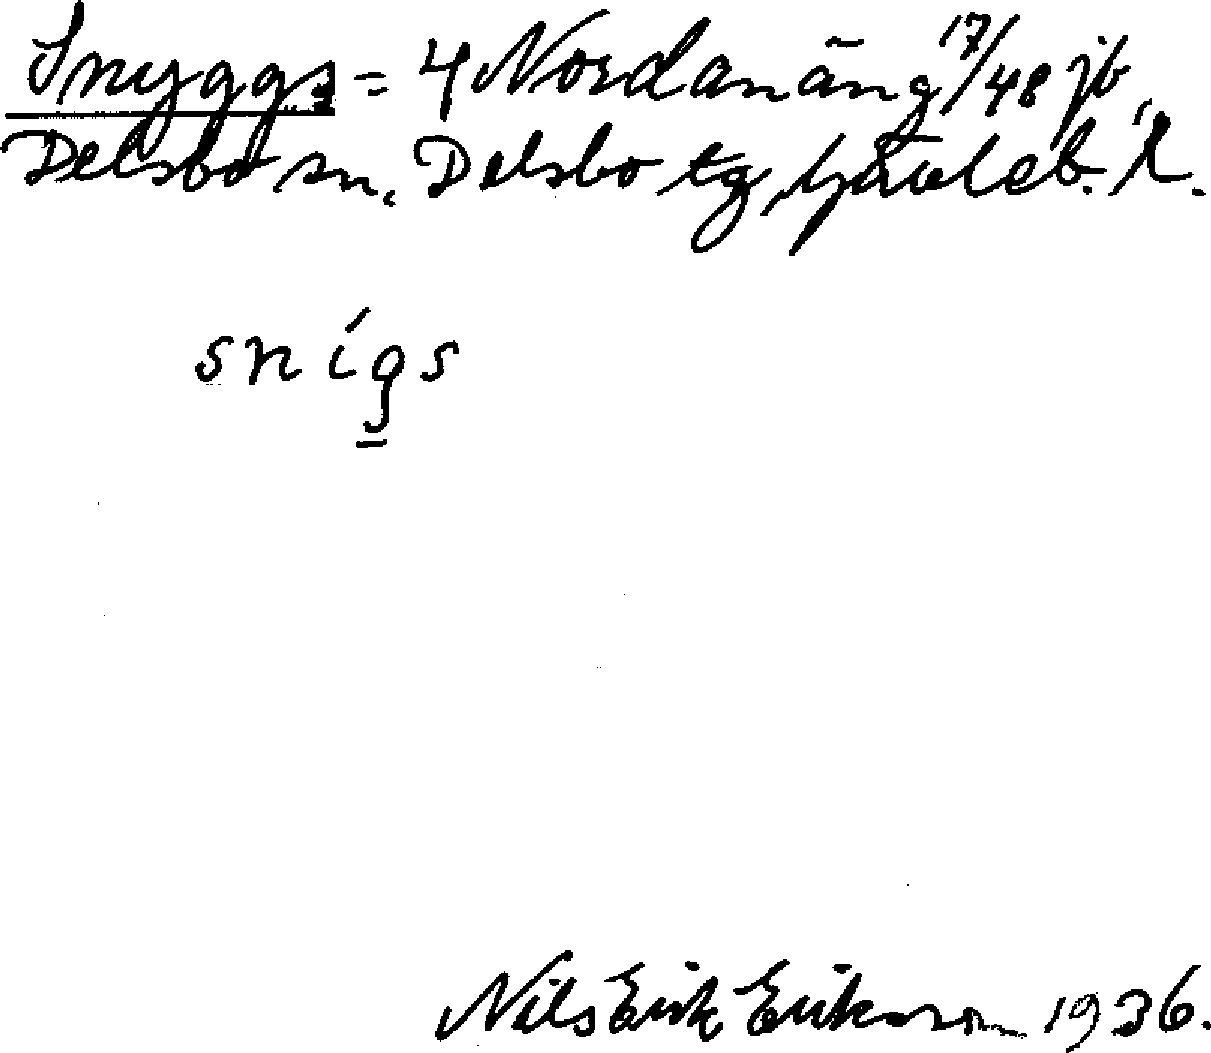 Snyggs = 4 Nordanäng 17/48 jb,
Delsbo sn, Delsbo tg, Gävleb. l.
snígs
Nils Erik Erikson 1936.